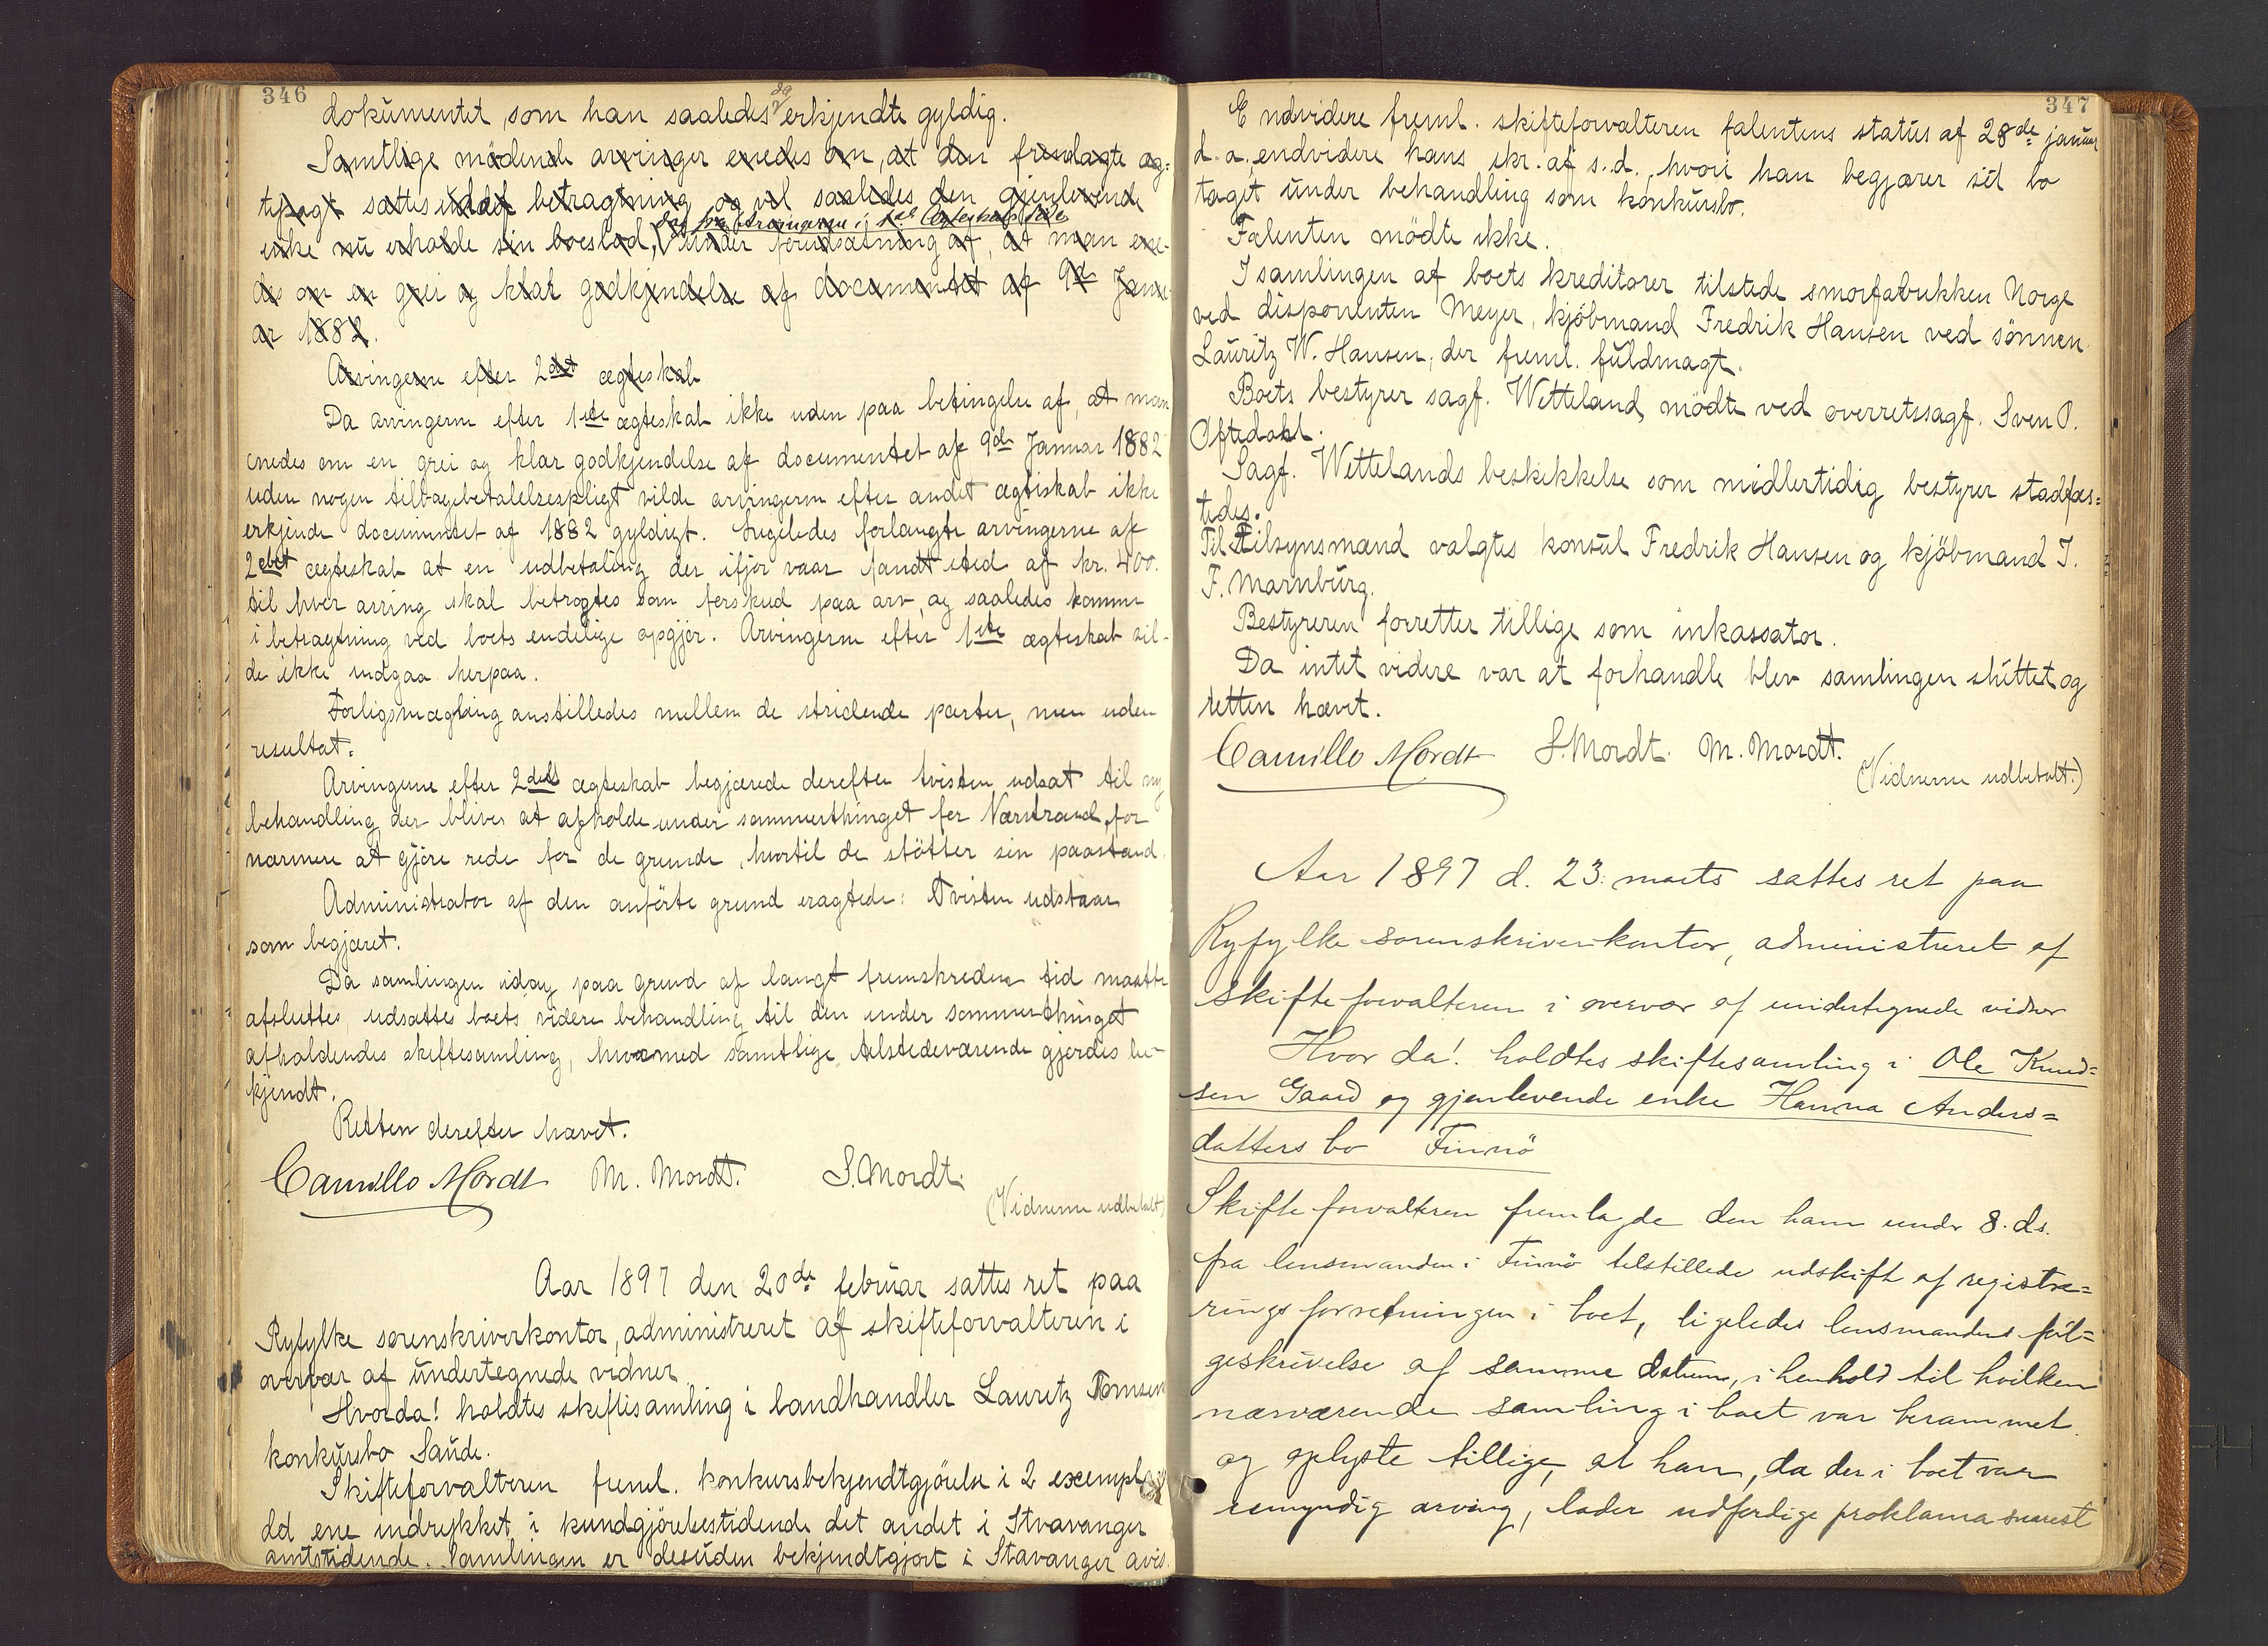 346
dokumentet, som han saaledes da erkjendte gyldig.
Samtlige mødende arvinger enedes om, at den fremlagte æg=
tepagt sattes ud af betragtning og vil saaledes den gjenlevende
enke nu erholde sin boeslod, under forudsætning af, at man ene-
des om en grei og klar godkjendelse af documentet af 9de Janu-
ar 1882.
Arvingerne efter 2det ægteskab
Da arvingerne efter 1ste ægteskab ikke uden paa betingelse af, at man
enedes om en grei og klar godkjendelse af documentet af 9de Januar 1882
uden nogen tilbagebetalelsespligt vilde arvingerne efter andet ægteskab ikke
erkjende documentet af 1882 gyldigt. Ligeledes forlangte arvingerne af
2det ægteskab at en udbetaling der ifjor vaar fandt sted af kr. 400.
til hver arving skal betragtes som forskud paa arv, og saaledes komme
i betragtning ved boets endelige opgjør. Arvingerne efter 1ste ægteskab vil-
de ikke indgaa herpaa.
Forligsmægling anstilledes mellem de stridende parter, men uden
resultat.
Arvingerne efter 2det ægteskab begjærede derefter tvisten udsat til ny
behandling der bliver at afholde under sommerthinget for Nærstrand, for
nærmere at gjøre rede for de grunde, hvortil de støtter sin paastand.
Administrator af den anførte grund eragtede: Tvisten udstaar
som begjæret.
Da samlingen idag paa grund af langt fremskreden tid maatte
afsluttes, udsattes boets videre behandling til den under sommerthinget
afholdendes skiftesamling, hvormed samtlige tilstedeværende gjordes be-
kjendt.
Retten derefter hævet.
Camillo Mordt M. Mordt. S. Mordt.
(Vidnerne udbetalt)
Aar 1897 den 20de februar sattes ret paa
Ryfylke sorenskriverkontor, administreret af skifteforvalteren i
overvær af undertegnede vidner
Hvorda! holdtes skiftesamling i landhandler Lauritz Tomsens
konkursbo Saude.
Skifteforvalteren freml. konkursbekjendtgjørelse i 2 exempl
det ene indrykket i kundgjørelsestidende det andet i Stavanger
amtstidende. Samlingen er desuden bekjendtgjort i Stavanger avis.
347
Endvidere freml. skifteforvalteren falentens status af 28de januar
d.a., endvidere hans skr. af s.d., hvori han begjærer sit bo
taget under behandling som konkursbo.
Falenten mødte ikke.
I samlingen af boets kreditorer tilstede smørfabrikken Norge
ved disponenten Meyer, kjøbmand Fredrik Hansen ved sønnen
Lauritz W. Hansen, der freml. fuldmagt.
Boets bestyrer sagf. Wetteland, mødte ved overretssagf. Sven O.
Oftedahl.
Sagf. Wettelands beskikkelse som midlertidig bestyrer stadfæs=
tedes.
Til Tilsynsmænd valgtes konsul Fredrik Hansen og kjøbmand I.
F. Marnburg.
Bestyreren forretter tillige som inkassator.
Da intet videre var at forhandle blev samlingen sluttet og
retten hævet.
Camillo Mordt S. Mordt. M. Mordt.
(Vidnerne udbetalt.)
Aar 1897 d. 23. marts sattes ret paa
Ryfylke sorenskriverkontor, administreret af
skifteforvalteren i overvær af undertegnede vidner
Hvor da! holdtes skiftesamling i Ole Knud=
sen Gaard og gjenlevende enke Hanna Anders=
datters bo Finnø
Skifteforvalteren fremlagde den ham under 8. ds.
fra lensmanden i Finnø tilstillede udskift af registre=
ringsforretningen i boet, ligeledes lensmandens føl=
geskrivelse af samme datum, i henhold til hvilken
nærværende samling i boet var berammet
og oplyste tillige, at han, da der i boet var
umyndig arving, lader udferdige proklama snarest